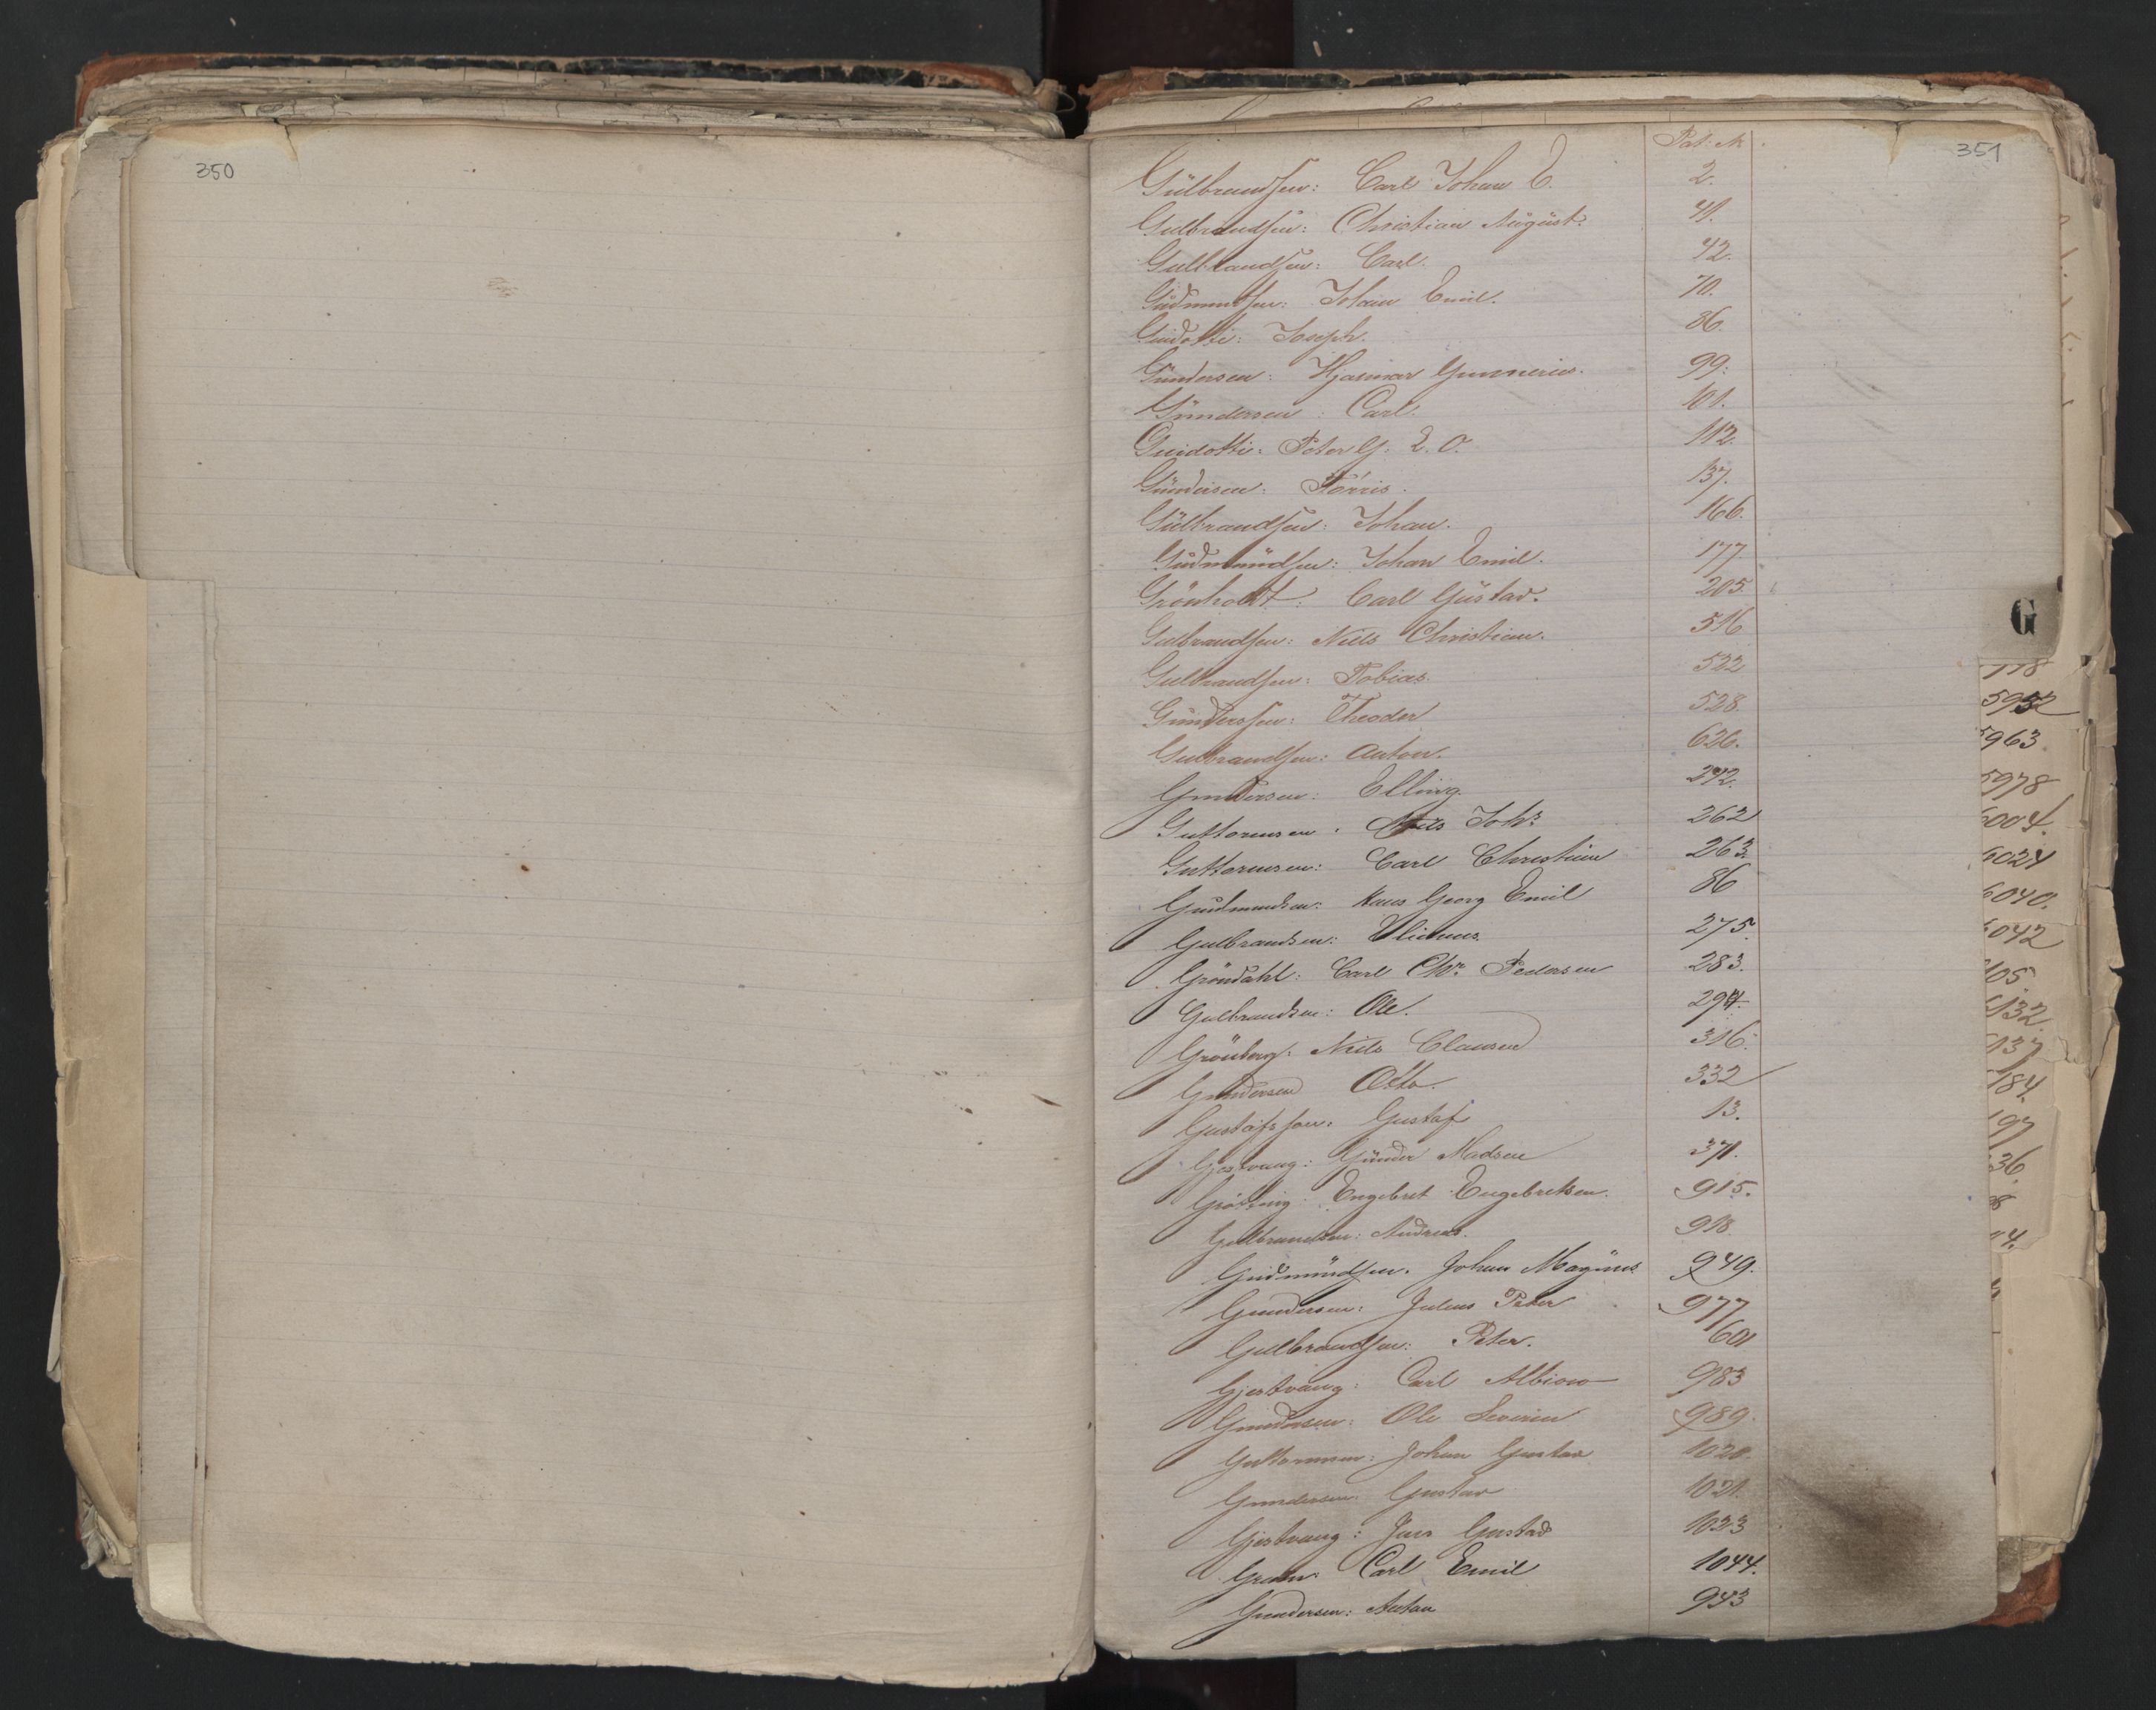 350
351
Pat. №
Gülbrandsen: Carl Johan E. 2.
Gulbrandsen: Christian August. 41.
Gulbrandsen: Carl. 42.
Gudmundsen: Johan Emil. 70.
Guidotti: Joseph. 86.
Gündersen: Hjalmar Gunnerius. 99.
Gündersen: Carl. 101.
Guidotti: Peter G. L. O. 112.
Gündersen: Törris. 137.
Gülbrandsen: Johan. 166.
Gudmündsen: Johan Emil. 177.
Grönholdt: Carl Güstav. 205.
Gulbrandsen: Niels Christian. 516
Gulbrandsen: Tobias. 522
Günderssen: Theodor 528.
Gulbrandsen: Anton. 626.
Gundersen: Elling. 242.
Guttormsen: Niels Johs 262
Guttormsen: Carl Christian 263.
Gudmundsen: Hans Georg Emil 86
Gulbrandsen: 275.
Gröndahl: Carl Chr. Pedersen 283.
Gulbrandsen: Ole. 294.
Grönberg: Niels Clausen 316.
Gundersen Otto. 332
Gustafsson: Gustaf 13.
Gjestvang: Günder Madsen 371.
Grötting: Engebret Engebretsen. 915.
Gulbrandsen: Andreas. 918.
Gudmündsen. Johan Magnus 949.
Gundersen: Julius Peter 977
Gulbrandsen: Peter. 601
Gjestvang: Carl Albion 983
Gundersen: Ole Severin 989.
Guttormsen: Johan Gustav 1020.
Gundersen: Gustav 1021.
Gjestvang: Jens Gustav 1023
Gram: Carl Emil 1044.
Gundersen: Anton 943
G
118
5952
5963
5978
6004.
6024
6040.
6042
105
6132.
137
184
197
36.